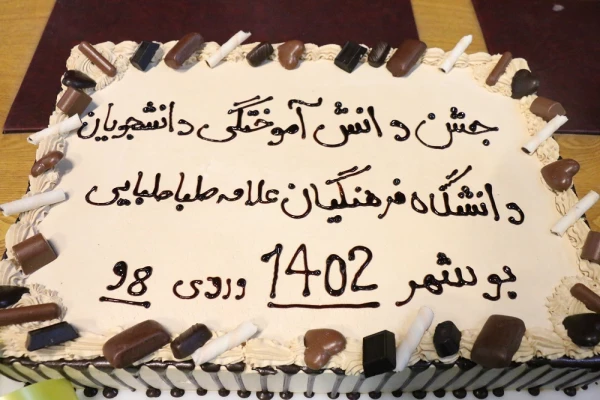 جشن دانش آموختگی دانشجویان
دانشگاه فرهنگیان علامه طباطبایی
بوشهر 1402 ورودی 98